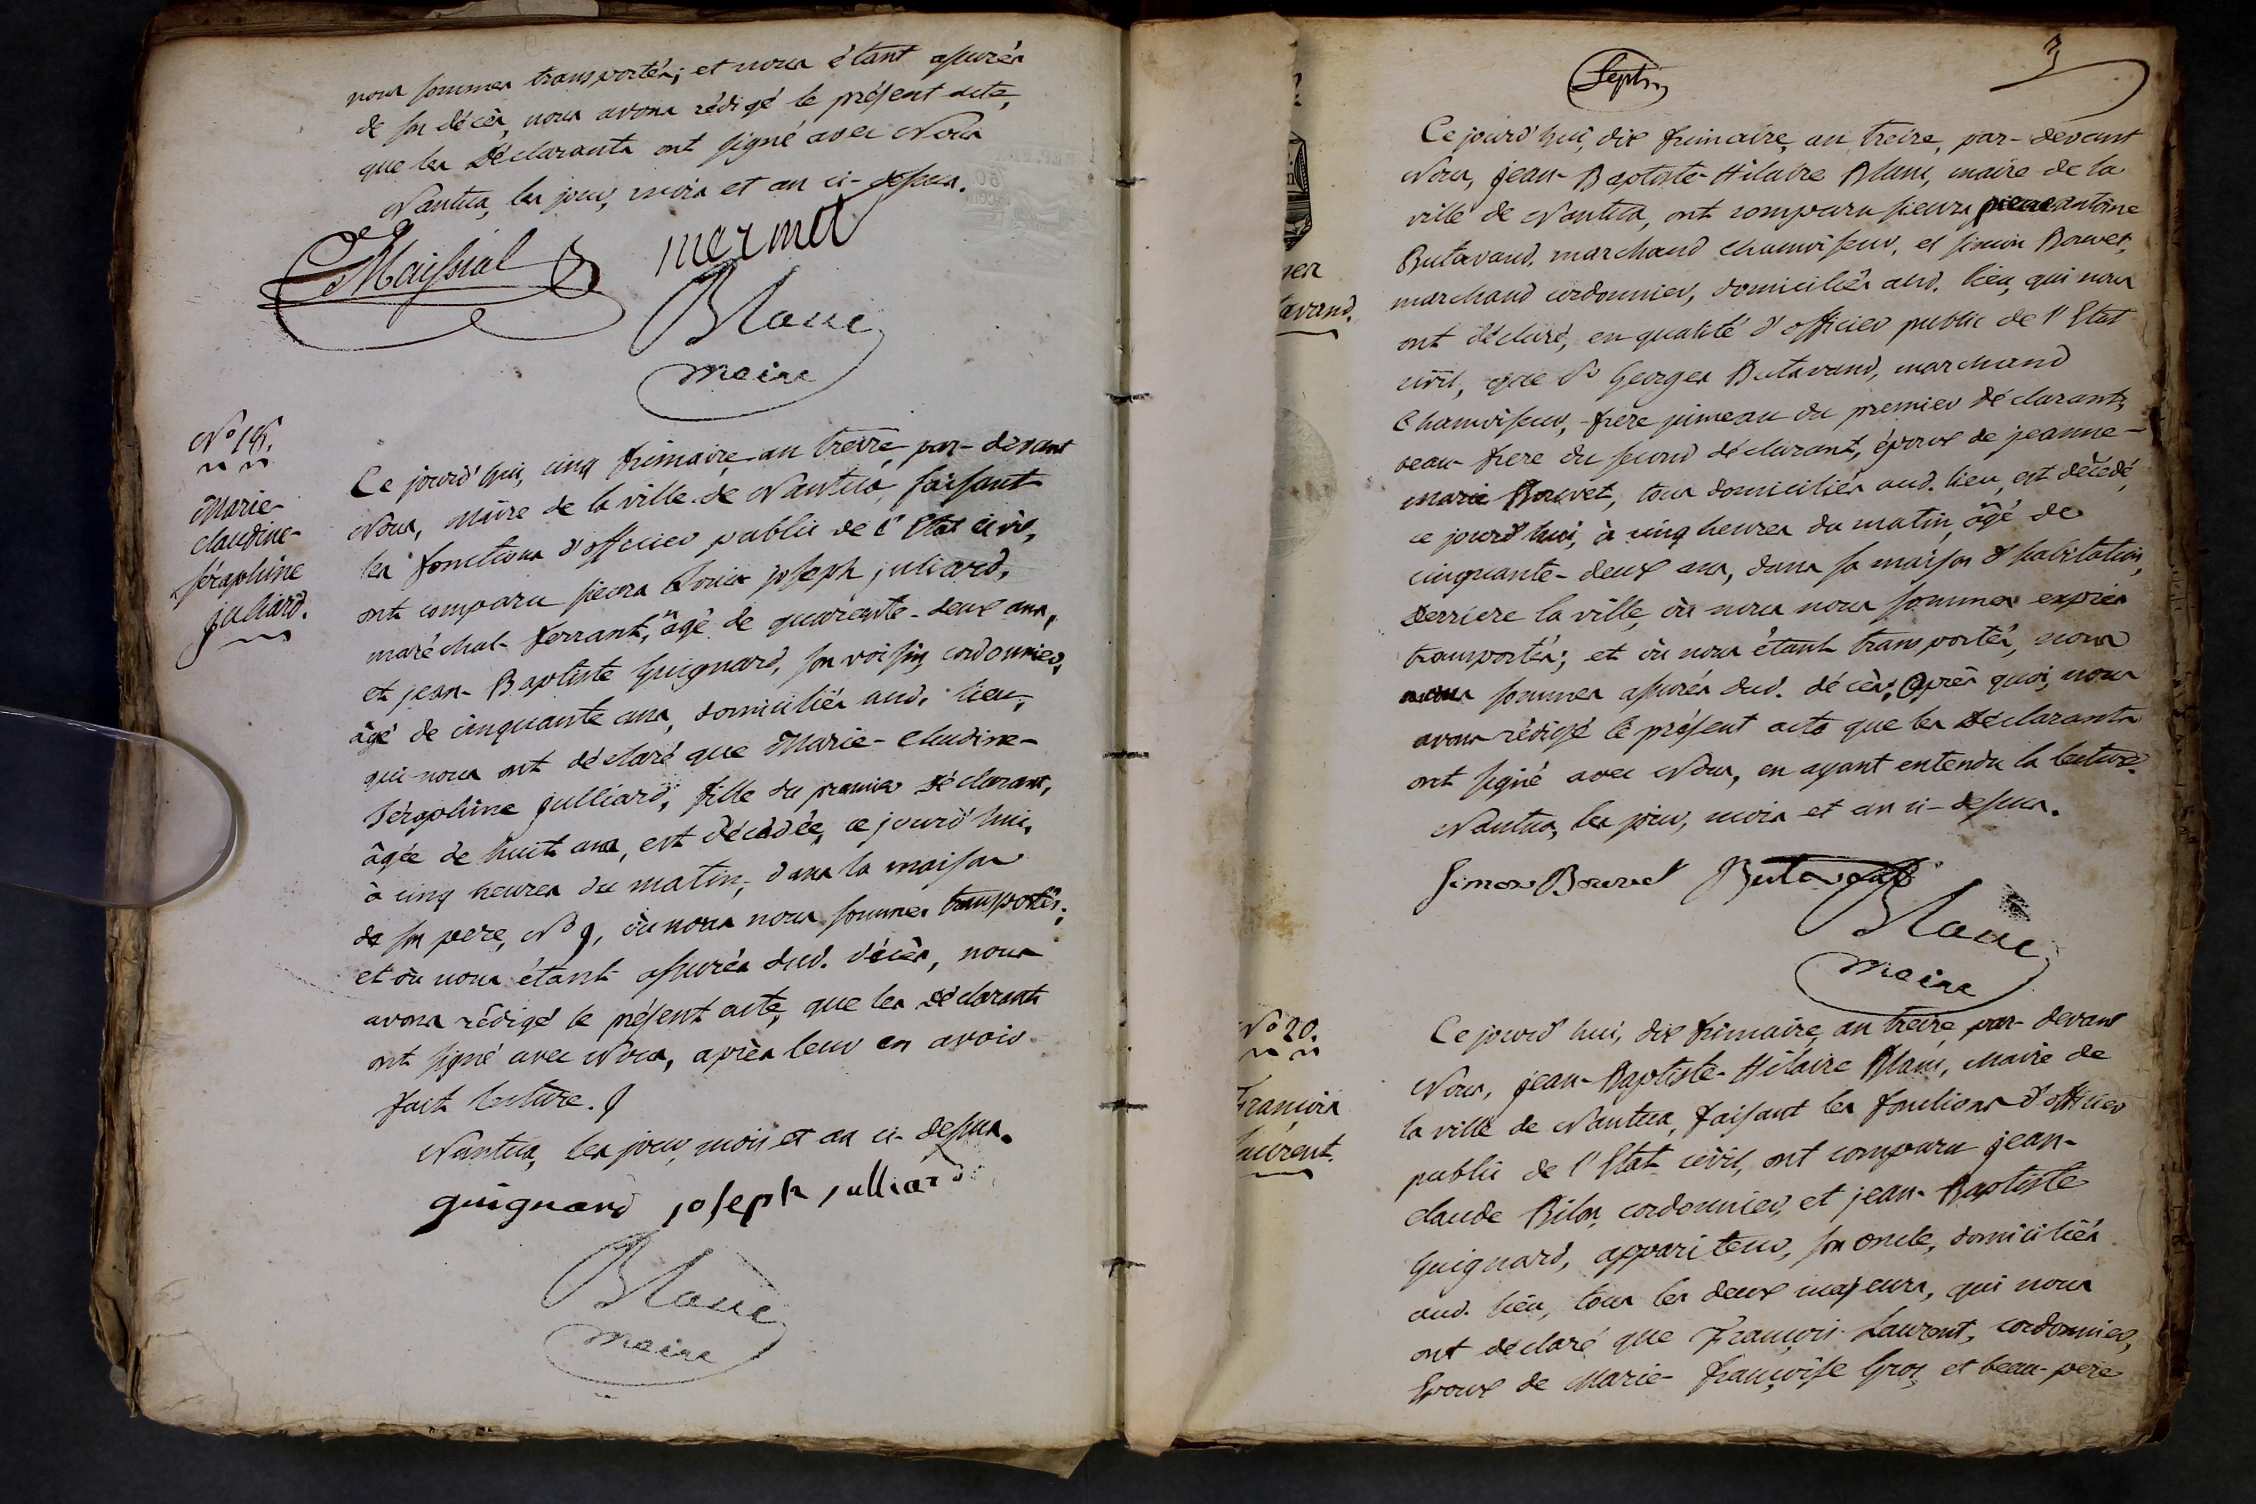 nous sommes transportés; et nous étant assurés
de son décès, nous avons rédigé le présent acte,
que les Déclarants ont signé avec Nous
Nantua, les jour, mois et an ci-dessus.
Maissiat mermet
Blanc
maire
Marie-
claudine-
séraphine
julliard.
Ce jourd'hui, cinq frimaire an treize, par-devant
Nous, Maire de la ville de Nantua, faisant
les fonctions d'officier public de l'Etat civil,
ont comparu sieurs joseph julliard,
maréchal-ferrant, âgé de quarante-deux ans,
et jean-Baptiste Guignard, son voisin, cordonnier,
âgé de cinquante ans, domiciliés aud. lieu,
qui nous ont déclaré que Marie-Claudine-
Séraphine julliard, fille du premier Déclarant,
âgée de huit ans, est décédée, ce jourd'hui,
à cinq heures du matin, dans la maison
de son pere, N° 9, où nous nous sommes transportés;
et où nous étant assurés dud. décès, nous
avons rédigé le présent acte, que les déclarants
ont signé avec Nous, après leur en avoir
fait lecture.
Nantua, les jour, mois et an ci-dessus.
guignard joseph julliard
Blanc
maire
3
Sept
avand.
Ce jourd'hui, dix frimaire, an treize, par-devant
Nous, jean-Baptiste-Hilaire Blanc, maire de la
ville de Nantua, ont comparu sieurs pierre antoine
Butavand, marchand chamoiseur, et simon Bouvet,
marchand cordonnier, domiciliés aud. lieu, qui nous
ont déclaré, en qualité d'officier public de l'Etat
civil, que Sr Georges Butavand, marchand
Chamoiseur, frère jumeau du premier déclarant,
beau-frere du second déclarant, époux de jeanne-
marie Bouvet, tous domiciliés aud. lieu, est décédé,
ce jourd'hui, à cinq heures du matin, âgé de
cinquante-deux ans, dans sa maison d'habitation,
derriere la ville, où nous nous sommes exprès
transportés; et où nous étant transportés, nous
nous sommes assurés dud. décès; Après quoi, nous
avons rédigé le présent acte que les Déclarants
ont signé avec Nous, en ayant entendu la lecture.
Nantua, les jour, mois et an ci-dessus.
Simon Bouvet Butavand
Blanc
maire
N° 20.
François
laurent.
Ce jourd'hui, dix frimaire, an treize, par-devant
Nous, jean-Baptiste-Hilaire Blanc, Maire de
la ville de Nantua, faisant les fonctions d'officier
public de l'Etat civil, ont comparu jean-
claude Bilon, cordonnier, et jean-Baptiste
Guignard, appariteur, son oncle, domiciliés
aud. lieu, tous les deux majeurs, qui nous
ont déclaré que François Laurent, cordonnier,
Epoux de Marie-françoise Gros, et beau-pere